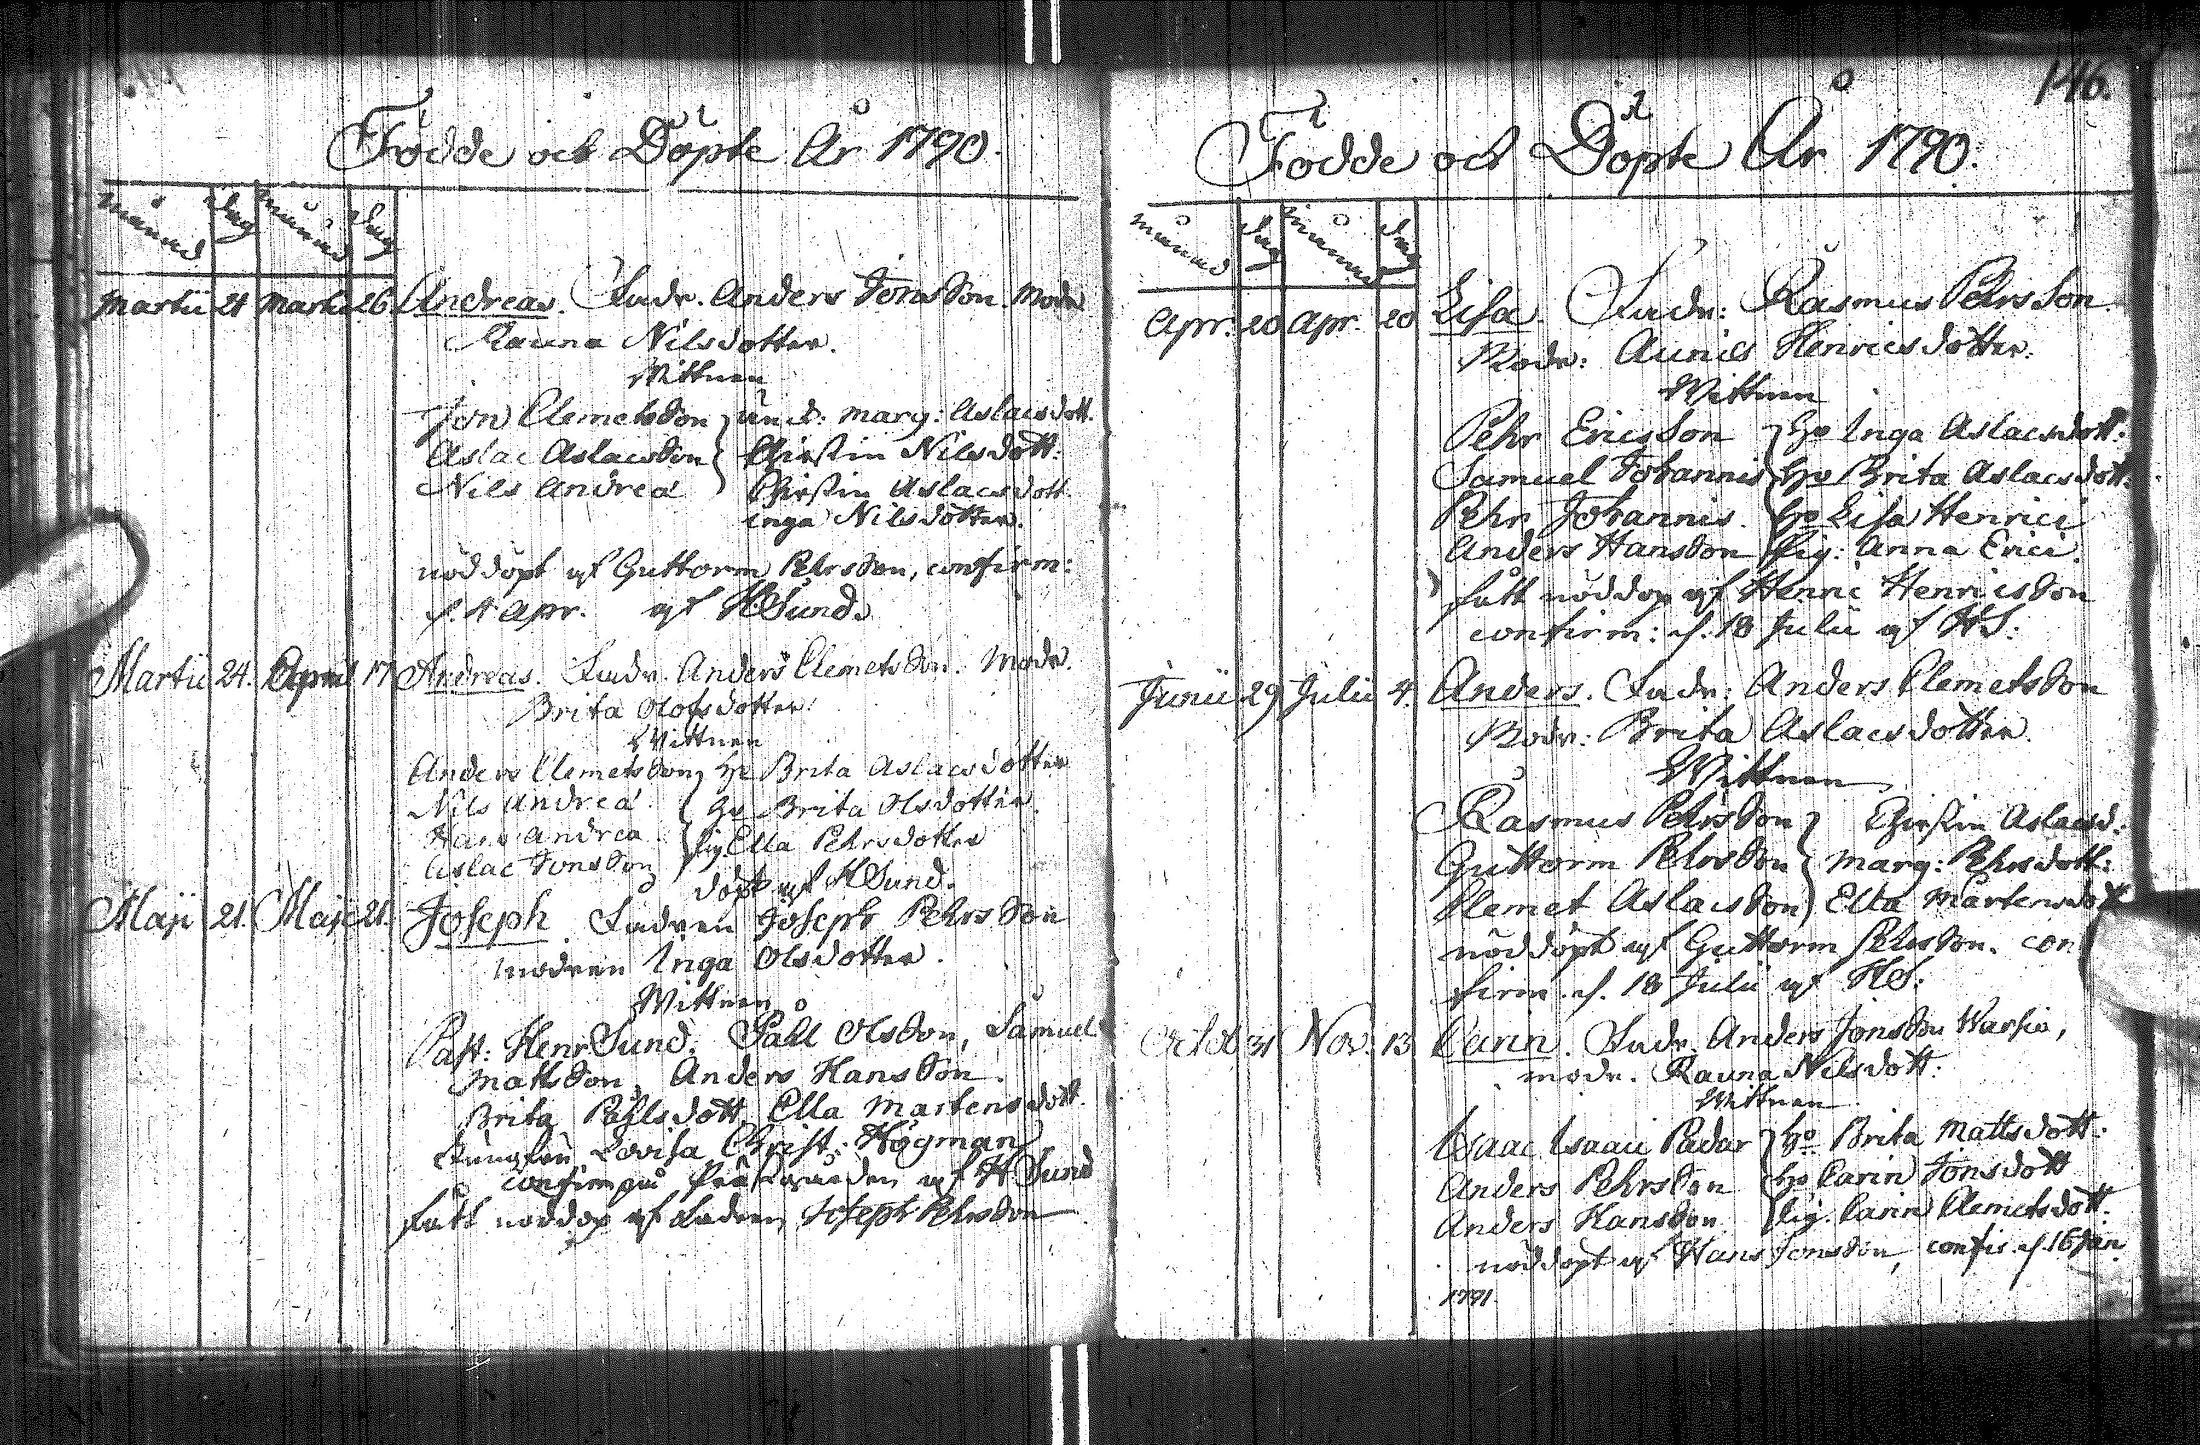 Födde och Döpte År 1790.
månad dag månad dag
Martii 21 Martii 26 Andreas. Fadr. Anders Jonsson. Modr
Rauna Nilsdotter.
Wittnen
Jon Clemetsson und: Marg: Aslacsdott.
Aslac Aslacsson Chirstin Nilsdott:
Nils Andreä Chirstin Aslacsdott
Inga Nilsdotter.
nöddöpt af Guttorm Pehrsson, confirm:
d. 4 Apr. af HSund.
Martii 24. April 17 Andreas. Fadr. Anders Clemetsson. Modr.
Brita Olofsdotter.
Wittnen
Anders Clemetsson hu Brita Aslacsdotter
Nils Andreä hu Brita Olsdotter.
Hans Andreä pig. Ella Pehrsdotter
Aslac Jonsson
döpt af HSund.
Maji 21. Maji 21. Joseph. Fadren Joseph Pehrsson
modren Inga Olsdotter.
Wittnen
Past: Henr Sund, Påll Olsson, Samuel
Mattsson, Anders Hansson.
Brita Påhlsdott, Ella Martensdott.
Jungfru Lovisa Christ: Högman
confirm på Prästgården af H Sund
fått nöddop af Fadren Joseph Pehrsson
146.
Födde och Döpte År 1790.
månad dag månad dag
Apr. 20 Apr. 20 Lisa. Fadr: Rasmus Pehrsson
Modr: Aunies Henricsdotter.
Wittnen
Pehr Ericsson hu Inga Aslacsdott:
Samuel Johannis hu Brita Aslacsdott:
Pehr Johannis. hu Lisa Henrici
Anders Hansson pig: Anna Erici.
fått nöddop af Henric Henricsson
confirm: d. 18 Julii af HS:
Junii 29 Julii 4. Anders. Fadr: Anders Clemetsson
Modr: Brita Aslacsdotter.
Wittnen
Rasmus Pehrsson Chirstin Aslacsd:
Guttorm Pehrsson Marg: Pehrsdott:
Clemet Aslacsson Ella Martensdott
nöddöpt af Guttorm Pehrsson. con
firm. d. 18 Julii af HS:
Octob 31 Nov. 13 Carin. Fadr. Anders Jonsson Warsio,
modr. Rauna Nilsdott:
Wittnen
Isaac Isaaci Padar hu Brita Mattsdott:
Anders Pehrsson hu Carin Jonsdott
Anders Hansson pig. Carin Clemetsdott.
nöddöpt af Hans Jonsson, confir. d. 16 Jan
1791.